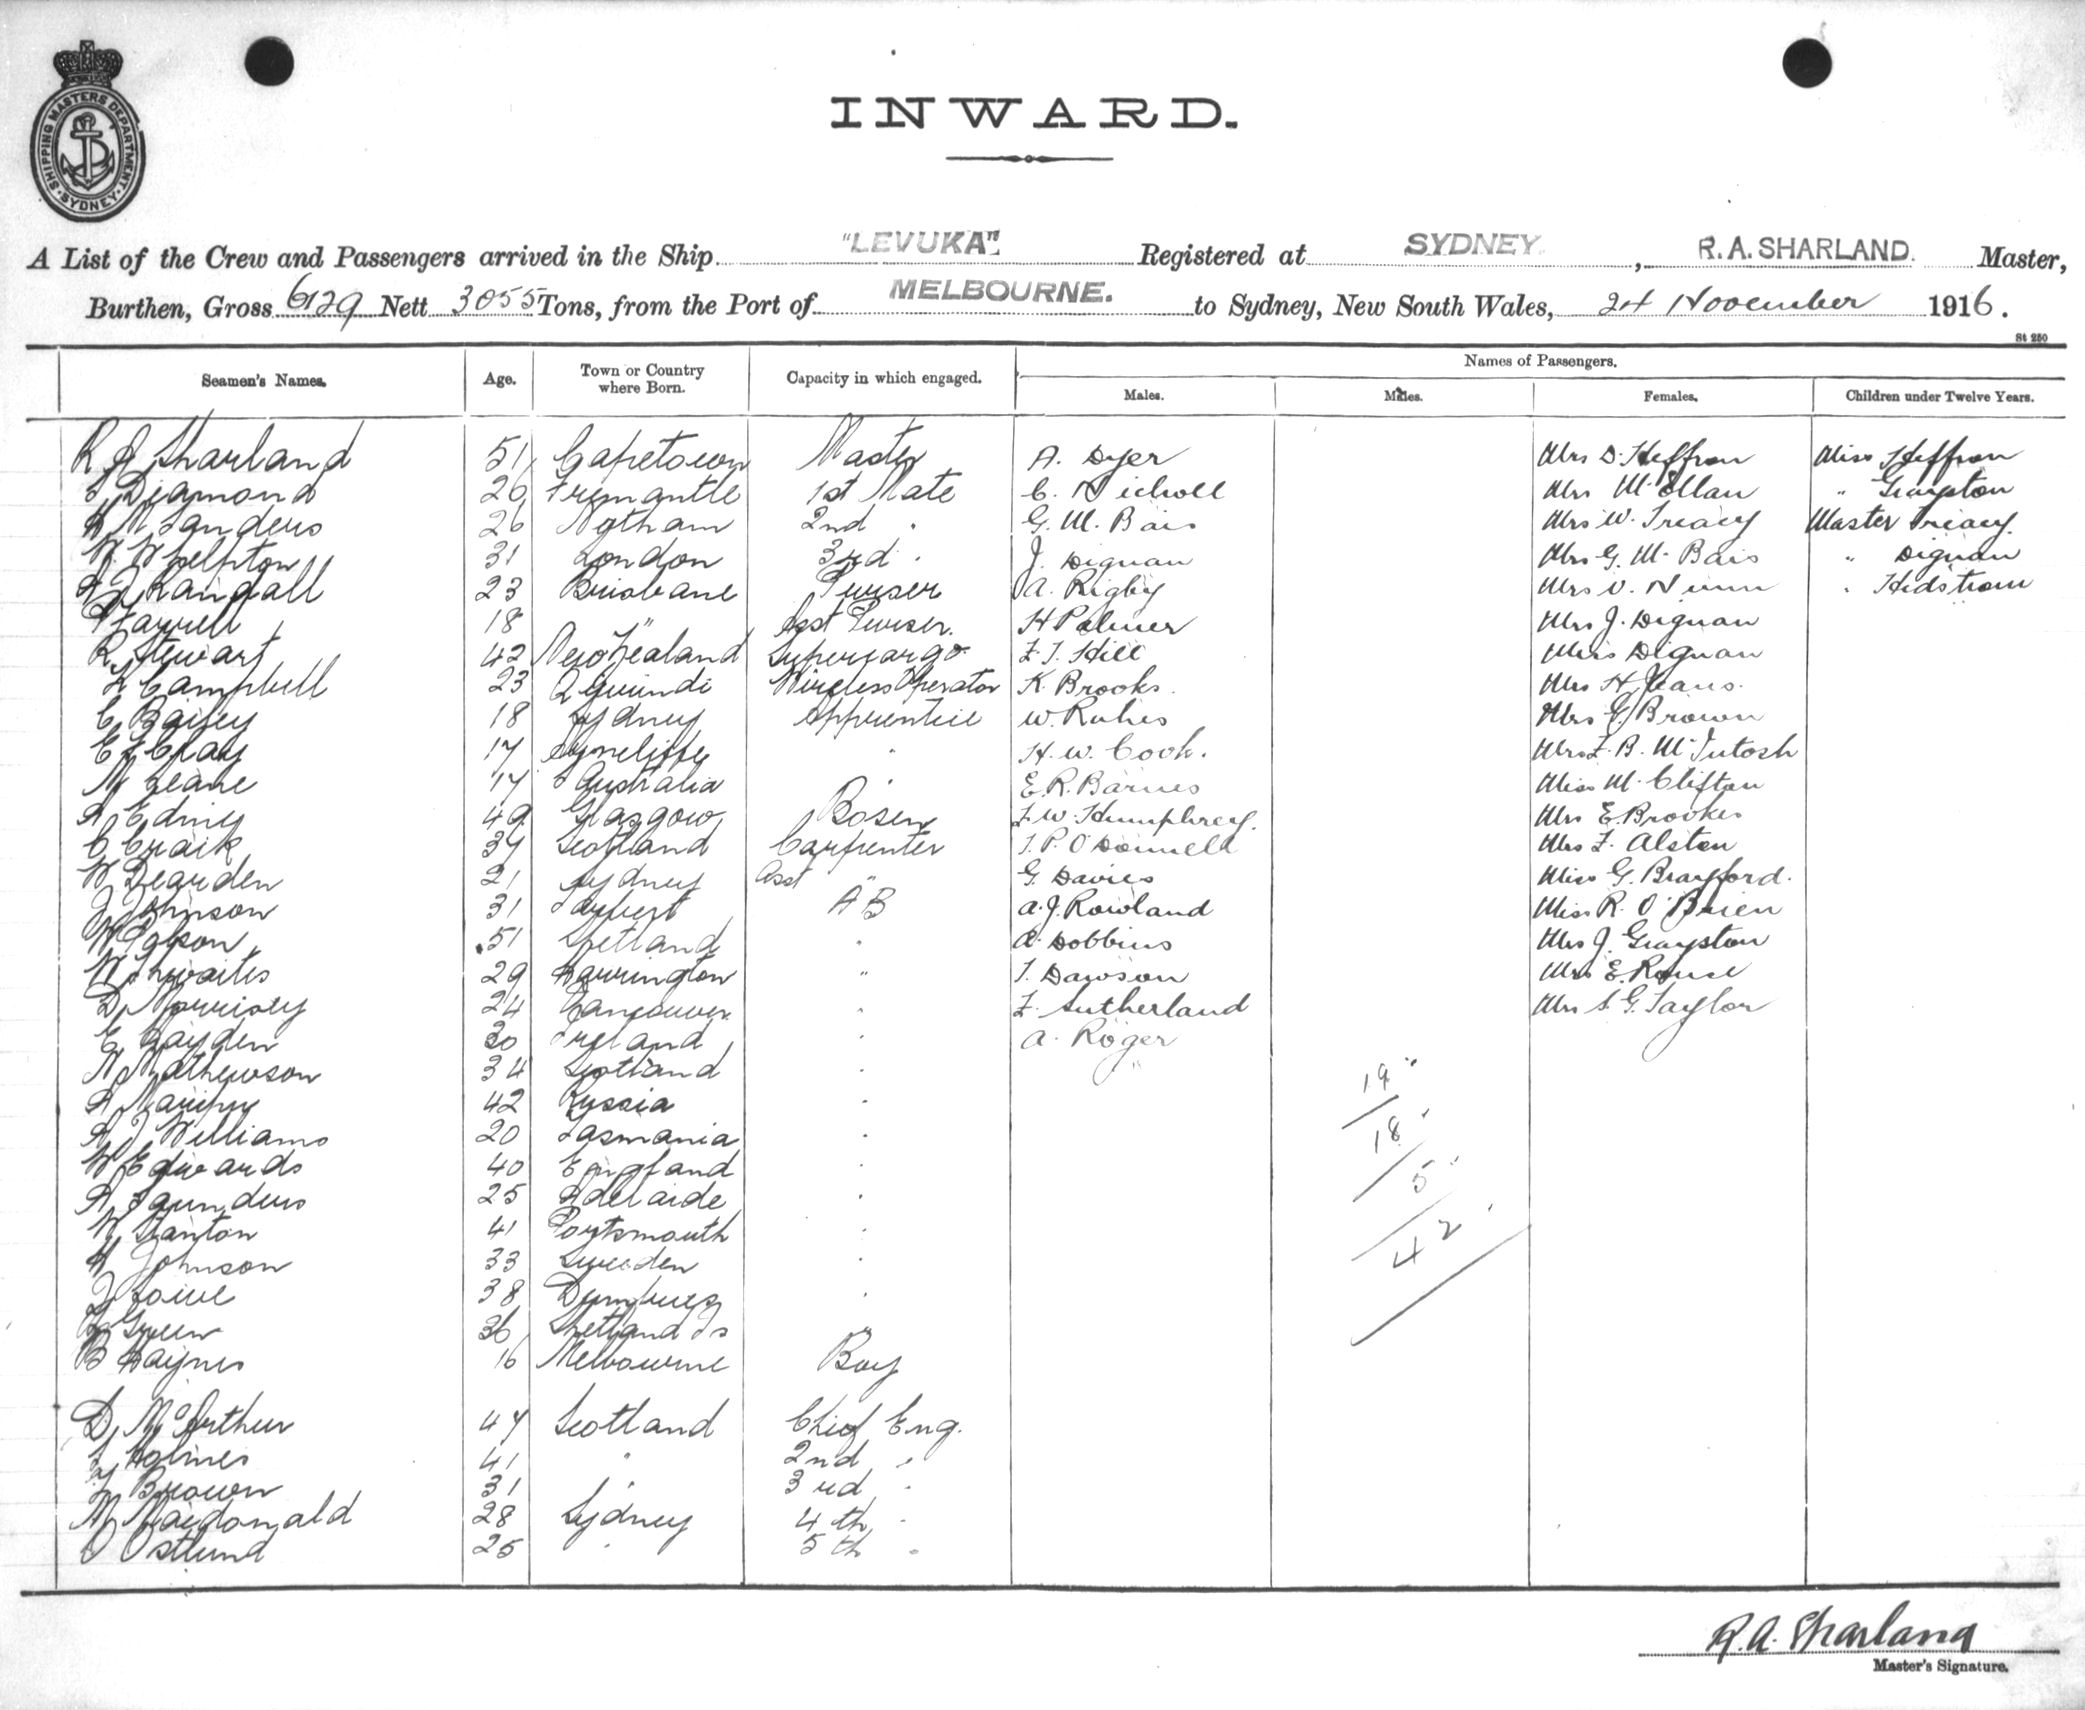 SHIPPING MASTERS DEPARTMENT
SYDNEY
INWARD.
A List of the Crew and Passengers arrived in the Ship "LEVUKA" Registered at SYDNEY, R. A. SHARLAND. Master,
Burthen, Gross 6129 Nett 3055 Tons, from the Port of MELBOURNE. to Sydney, New South Wales, 24 November 1916.
St 250
Seamen's Names. Age. Town or Country where Born. Capacity in which engaged. Names of Passengers.
Males. Males. Females. Children under Twelve Years.
R A Sharland 51 Capetown Master A. Dyer Mrs D. Heffron Miss Heffron
Diamond 26 Fremantle 1st Mate C. Nicholl Mrs McEllan " Grayston
Sanders 26 2nd " G. M. Bais Mrs W. Treacy Master Treacy
W Whelpton 31 London 3rd " J. Dignan Mrs G. M. Bais " Dignan
Randall 23 Brisbane Purser A. Rigby Mrs V. Nunn " Hedstrom
Farrell 18 " Asst Purser. H Palmer Mrs J. Dignan
R Stewart 42 New Zealand Supercargo F. T. Hill Miss Dignan
Campbell 23 Wireless Operator K. Brooks. Mrs H. Jeans.
C Bailey 18 Sydney Apprentice W. Ruhis Mrs Brown
C Gray 17 " H. W. Cook. Mrs F. B. McIntosh
Keane 17 Australia " E. R. Barnes Miss M. Clifton
A Edmiy 49 Glasgow Bosen F. W. Humphrey. Mrs E. Brookes
C Craik 34 Scotland Carpenter T. P. O'Donnell Mrs F. Alston
W Dearden 21 Sydney Asst " G. Davies Miss G. Brayford.
J Johnson 31 AB A. J. Rowland Miss R. O'Brien
51 Shetland " A. Dobbins Mrs J. Grayston
W Thwaites 29 Barrington " T. Dawson Mrs E. Rouse
D Morrissey 24 Vancouver " F. Sutherland Mrs S. G. Taylor
E Hayden 30 Ireland " A. Roger
Mathewson 34 Scotland "
42 Russia "
A J Williams 20 Tasmania "
W Edwards 40 England "
A Saunders 25 Adelaide "
W Stanton 41 Portsmouth "
H Johnson 33 Sweden "
J Lowe 38 Dumfries "
Green 36 Shetland Is "
B Haynes 16 Melbourne Boy
19
18
5
42
D McArthur 47 Scotland Chief Eng.
Holmes 41 " 2nd "
Brown 31 " 3rd "
M Macdonald 28 Sydney 4th "
Ostlund 25 " 5th "
R. A. Sharland
Master's Signature.